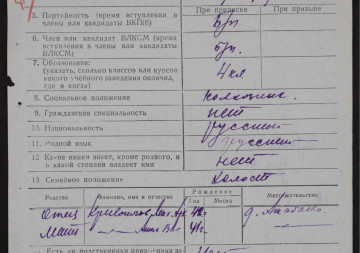 При приписке При призыве
5. Партийность (время вступления в
члены или кандидаты ВКП(б) б/п
6. Член или кандидат ВЛКСМ (время
вступления в члены или кандидаты
ВЛКСМ) б/п.
7. Образование:
(указать, сколько классов или курсов
какого учебного заведения окончил,
где и когда) 4 кл
8. Социальное положение
9. Гражданская специальность нет
10. Национальность русский
11. Родной язык русский
12. Какие языки знает, кроме родного, и
в какой степени владеет ими нет
13. Семейное положение холост
Родство Фамилия, имя и отчество Рождение Местожительство
Год Месяц
Отец д.
Мать
14. Есть ли родственники